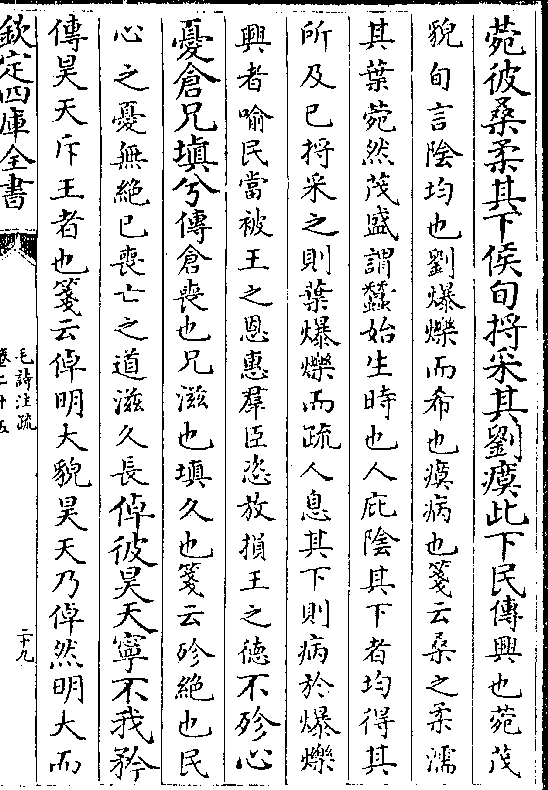 菀彼桑柔其下侯旬捋采其劉瘼此下民傳興也菀茂
貌旬言陰均也劉爆爍而希也瘼病也箋云桑之柔濡
其葉菀然茂盛謂蠶始生時也人庇陰其下者均得其
所及已捋采之則葉爆爍而疏人息其下則病於爆爍
興者喻民當被王之恩惠羣臣恣放損王之德不殄心
憂倉兄填兮傳倉喪也兄滋也填久也箋云殄絶也民
心之憂無絶已喪亡之道滋久長倬彼昊天寧不我矜
傳昊天斥王者也箋云倬明大貌昊天乃倬然明大而
欽定四庫全書
毛詩注疏
卷二十五
二十九